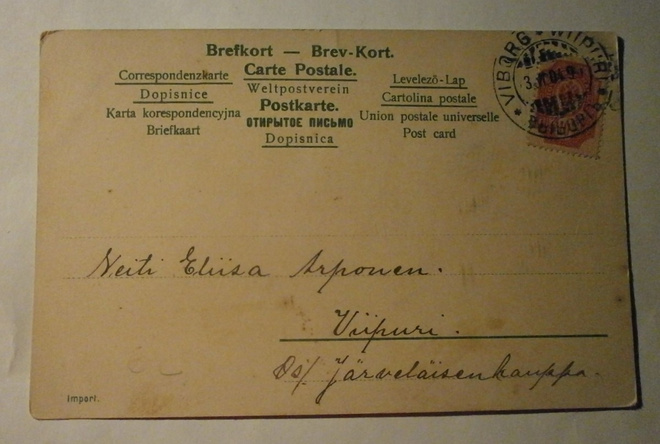 Brefkort — Brev-Kort.
Correspondenzkarte
Dopisnice
Karta korespondencyjna
Briefkaart
Carte Postale.
Weltpostverein
Postkarte.
ОТКРЫТОЕ ПИСЬМО
Dopisnica
Levelező-Lap
Cartolina postale
Union postale universelle
Post card
VIBORG * WIIPURI
Neiti Eliisa Arponen.
Viipuri.
Os/. Järveläisenkauppa.
Import.